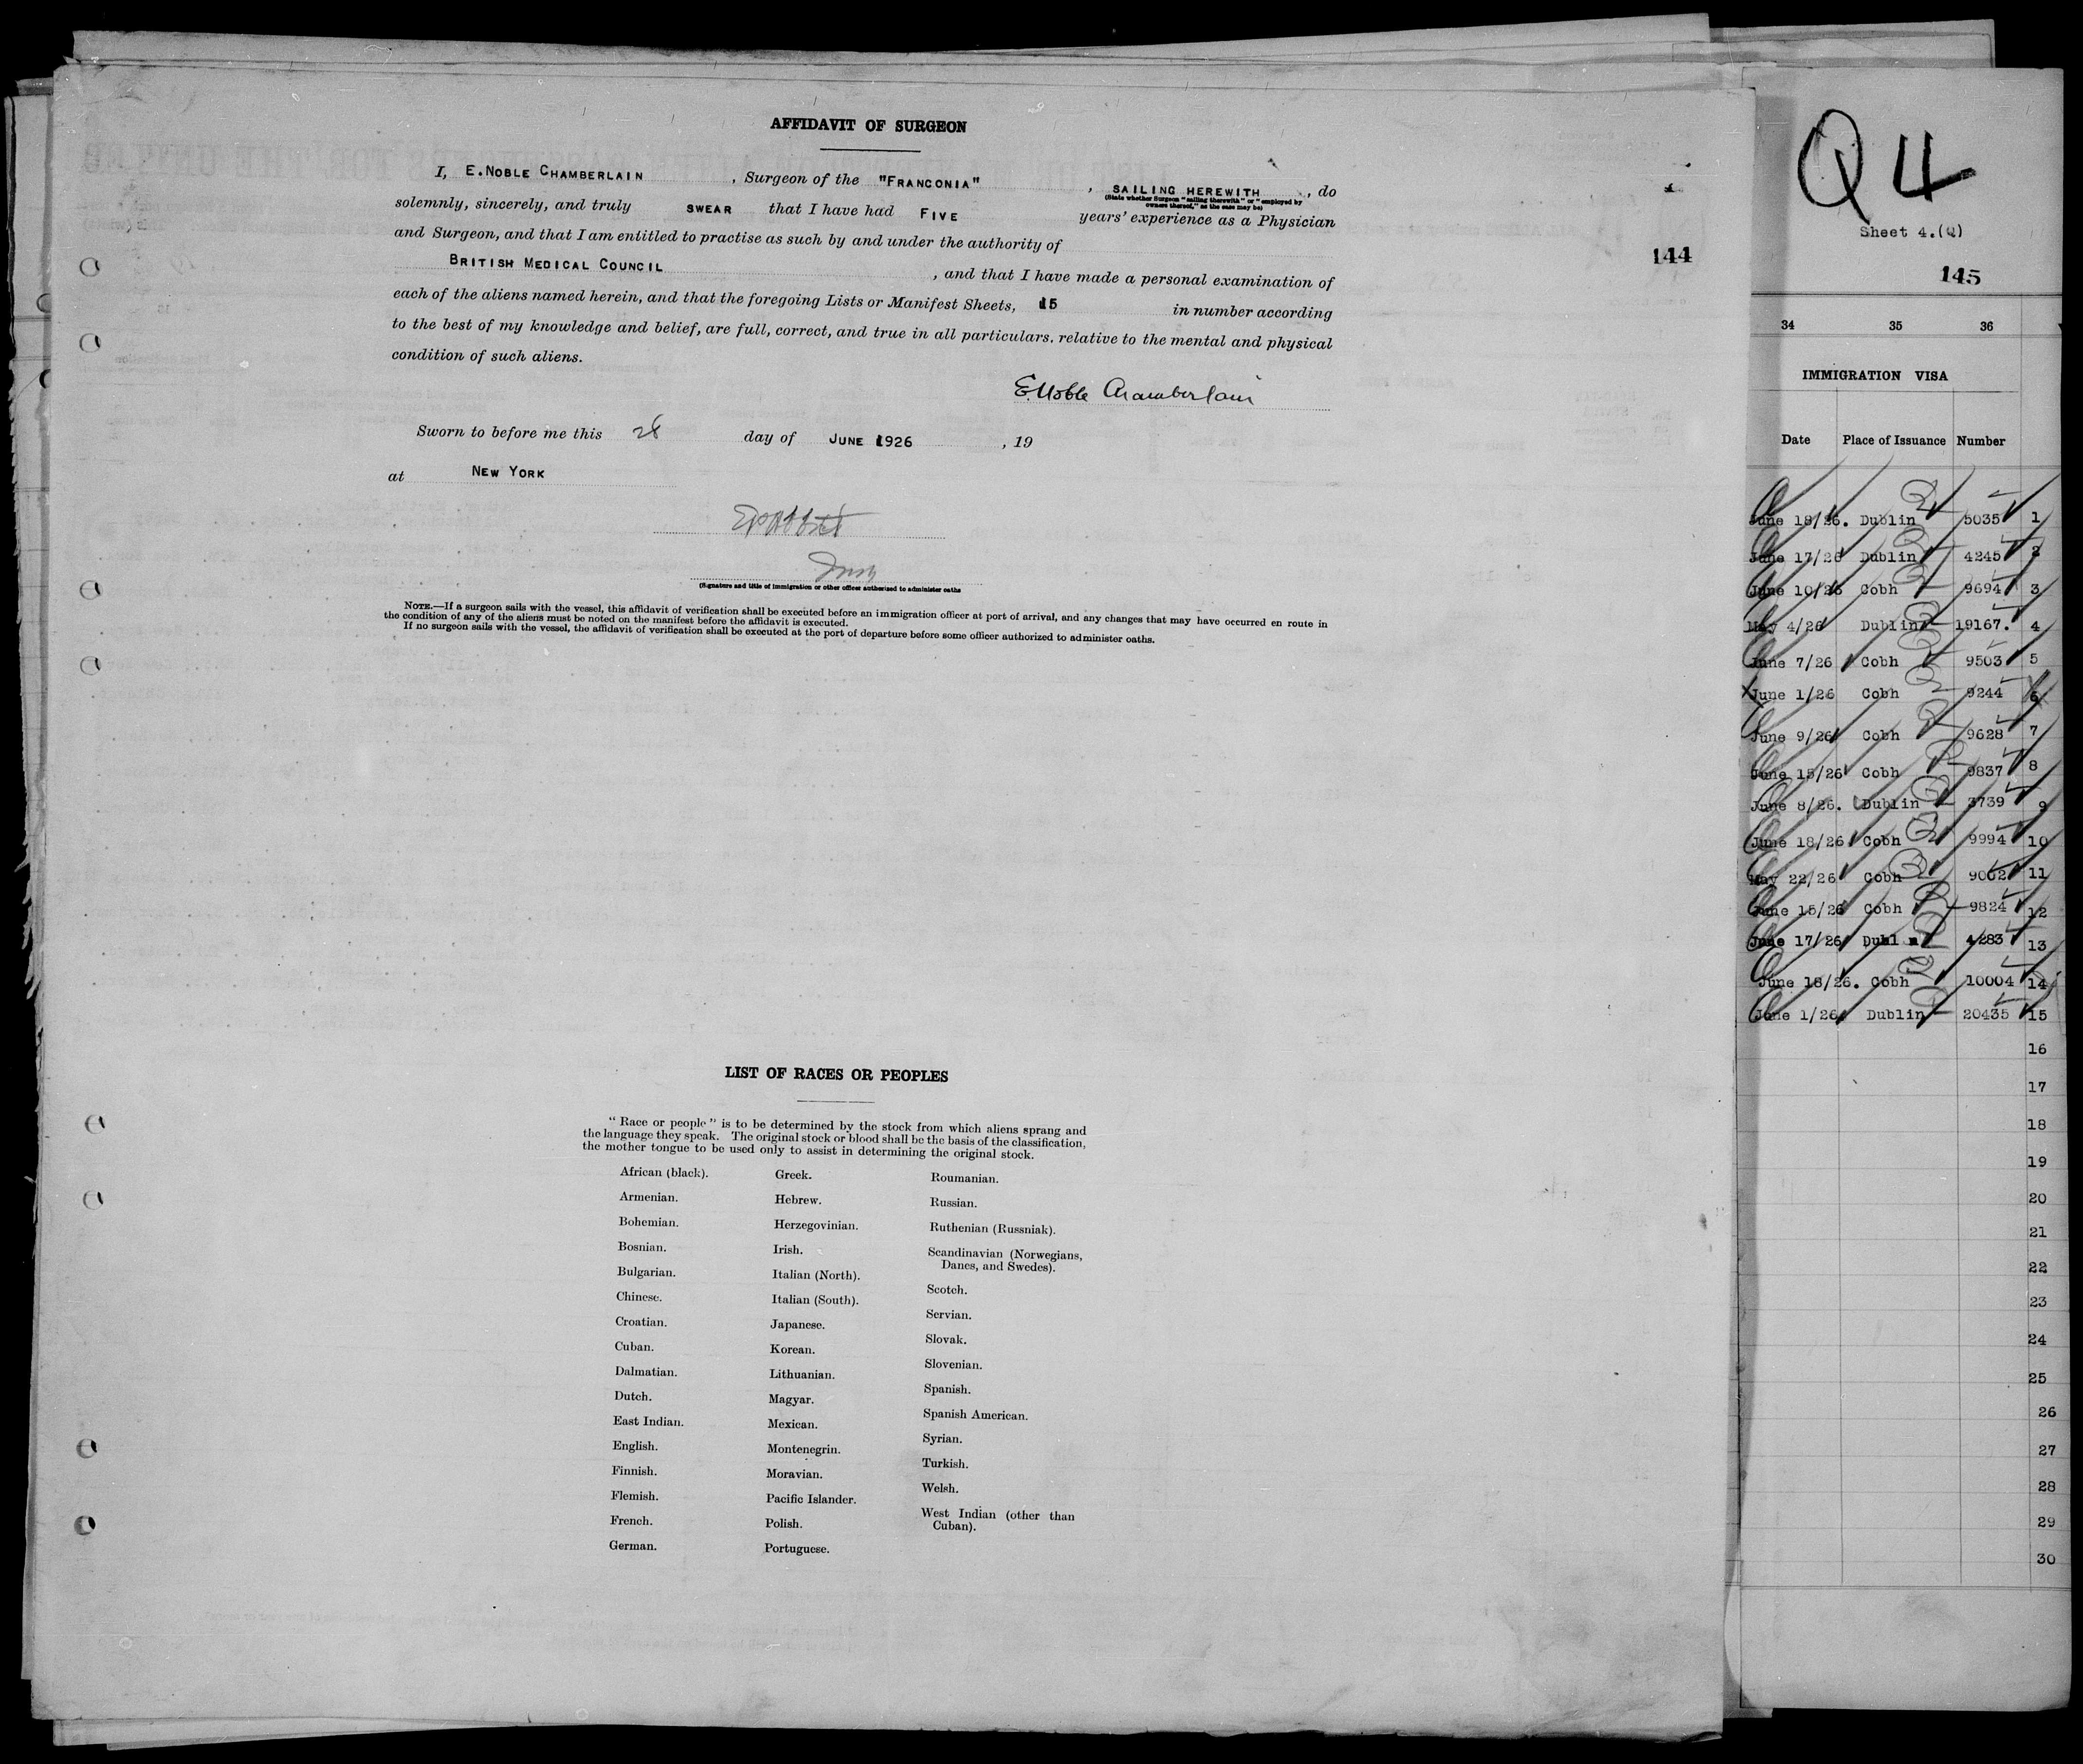 AFFIDAVIT OF SURGEON
I, E.NOBLE CHAMBERLAIN, Surgeon of the "FRANCONIA", SAILING HEREWITH, do
(State whether Surgeon "sailing therewith" or "employed by
owners thereof," as the case may be)
solemnly, sincerely, and truly SWEAR that I have had FIVE years' experience as a Physician
and Surgeon, and that I am entitled to practise as such by and under the authority of
BRITISH MEDICAL COUNCIL, and that I have made a personal examination of
each of the aliens named herein, and that the foregoing Lists or Manifest Sheets, 15 in number according
to the best of my knowledge and belief, are full, correct, and true in all particulars, relative to the mental and physical
condition of such aliens.
E. Noble Chamberlain
Sworn to before me this 28 day of JUNE 1926, 19
at NEW YORK
(Signature and title of immigration or other officer authorized to administer oaths
NOTE.—If a surgeon sails with the vessel, this affidavit of verification shall be executed before an immigration officer at port of arrival, and any changes that may have occurred en route in
the condition of any of the aliens must be noted on the manifest before the affidavit is executed.
If no surgeon sails with the vessel, the affidavit of verification shall be executed at the port of departure before some officer authorized to administer oaths.
144
LIST OF RACES OR PEOPLES
"Race or people" is to be determined by the stock from which aliens sprang and
the language they speak. The original stock or blood shall be the basis of the classification,
the mother tongue to be used only to assist in determining the original stock.
African (black).
Armenian.
Bohemian.
Bosnian.
Bulgarian.
Chinese.
Croatian.
Cuban.
Dalmatian.
Dutch.
East Indian.
English.
Finnish.
Flemish.
French.
German.
Greek.
Hebrew.
Herzegovinian.
Irish.
Italian (North).
Italian (South).
Japanese.
Korean.
Lithuanian.
Magyar.
Mexican.
Montenegrin.
Moravian.
Pacific Islander.
Polish.
Portuguese.
Roumanian.
Russian.
Ruthenian (Russniak).
Scandinavian (Norwegians,
Danes, and Swedes).
Scotch.
Servian.
Slovak.
Slovenian.
Spanish.
Spanish American.
Syrian.
Turkish.
Welsh.
West Indian (other than
Cuban).
Q 4
Sheet 4.(Q)
145
34 35 36
IMMIGRATION VISA
Date Place of Issuance Number
June 18/26. Dublin 5035 1
June 17/26 Dublin 4245 2
June 10/26 Cobh 9694 3
May 4/26 Dublin 19167. 4
June 7/26 Cobh 9503 5
June 1/26 Cobh 9244 6
June 9/26 Cobh 9628 7
June 15/26 Cobh 9837 8
June 8/26. Dublin 3739 9
June 18/26 Cobh 9994 10
May 22/26 Cobh 9002 11
June 15/26 Cobh 9824 12
June 17/26 Dubl n 4283 13
June 18/26. Cobh 10004 14
June 1/26 Dublin 20435 15
16
17
18
19
20
21
22
23
24
25
26
27
28
29
30